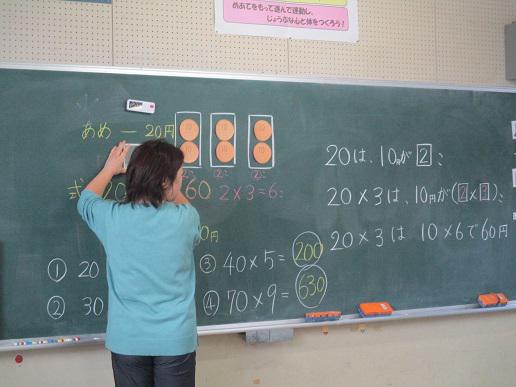 めあてをもって進んで運動し、
じょうぶな心と体をつくろう!
あめ 一 20円
10 10 10
10 10 10
2こ 2こ 2こ
式 20 60 2×3=6こ
円
① 20
② 30
③ 40×5=200
④ 70×9=630
20は、10円が2こ
20×3は、10円が(2×3)こ
20×3は 10×6で60円